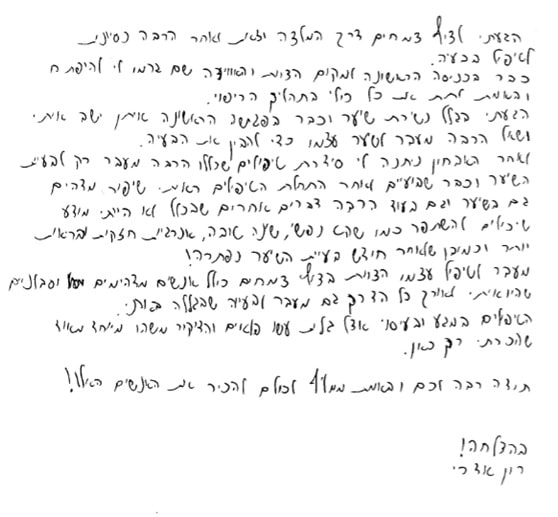 הגעתי לציף צמחים דרך המלצה וזאת אחר הרבה נסיונות
לטיפול בבעיה.
כבר בכניסה הראשונה למקום הצוות והאווירה שם גרמו לי להיפתח
ובאמת לתת את כל כולי בתהליך הריפוי.
הגעתי בגלל נשירת שיער וכבר בפגישה הראשונה איתן ישב איתי
ושאל הרבה מעבר לשער עצמו כדי להבין את הבעיה.
לאחר האבחון ניתנה לי סידרת טיפולים שכללו הרבה מעבר רק לבעיית
השיער וכבר שבועיים לאחר התחלת הטיפולים ראיתי שיפור מדהים
גם בשיער וגם בעוד הרבה דברים אחרים שבכלל לא הייתי מודע
שיכולים להשתפר כמו שקט נפשי, שינה טובה, אנרגיות חזקות ובראות
יותר וכמובן שלאחר חודש בעיית השיער נפתרה!
מעבר לטיפול עצמו הצוות בציף צמחים כולל אנשים מדהימים וסבלנים
שהיו איתי לאורך כל הדרך גם מעבר לבעיה שבגללה באתי.
הטיפולים במגע ובעיסוי אצל גלית עשו פלאים והדיקור משהו מיוחד מאוד
שהכרתי רק כאן.
תודה רבה לכם ובאמת ממליץ לכולם להכיר את האנשים האלו!!
בהצלחה!
רון אדרי